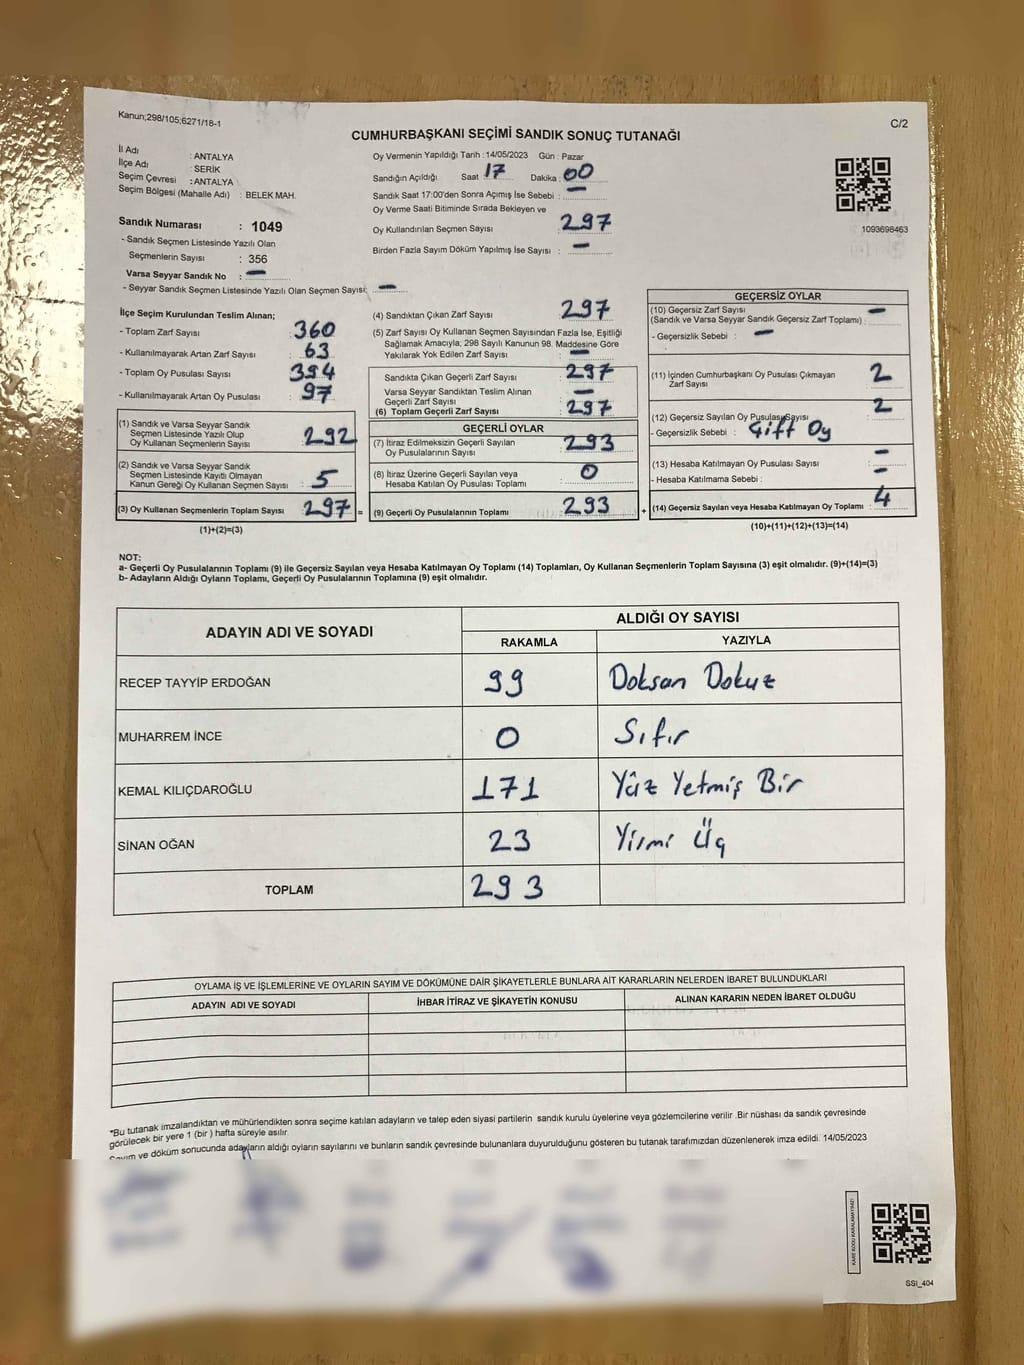 Kanun;298/105;6271/18-1
C/2
CUMHURBAŞKANI SEÇİMİ SANDIK SONUÇ TUTANAĞI
İl Adı : ANTALYA
İlçe Adı : SERİK
Seçim Çevresi : ANTALYA
Seçim Bölgesi (Mahalle Adı) : BELEK MAH.
Sandık Numarası : 1049
- Sandık Seçmen Listesinde Yazılı Olan
Seçmenlerin Sayısı : 356
Varsa Seyyar Sandık No : —
- Seyyar Sandık Seçmen Listesinde Yazılı Olan Seçmen Sayısı; —
Oy Vermenin Yapıldığı Tarih : 14/05/2023 Gün : Pazar
Sandığın Açıldığı Saat 17 Dakika : 00
Sandık Saat 17:00'den Sonra Açımış İse Sebebi : —
Oy Verme Saati Bitiminde Sırada Bekleyen ve
Oy Kullandırılan Seçmen Sayısı : 297
Birden Fazla Sayım Döküm Yapılmış İse Sayısı : —
1093698463
İlçe Seçim Kurulundan Teslim Alınan;
- Toplam Zarf Sayısı : 360
- Kullanılmayarak Artan Zarf Sayısı : 63
- Toplam Oy Pusulası Sayısı : 394
- Kullanılmayarak Artan Oy Pusulası : 97
(1) Sandık ve Varsa Seyyar Sandık
Seçmen Listesinde Yazılı Olup
Oy Kullanan Seçmenlerin Sayısı : 292
(2) Sandık ve Varsa Seyyar Sandık
Seçmen Listesinde Kayıtlı Olmayan
Kanun Gereği Oy Kullanan Seçmen Sayısı : 5
(3) Oy Kullanan Seçmenlerin Toplam Sayısı : 297 =
(1)+(2)=(3)
(4) Sandıktan Çıkan Zarf Sayısı : 297
(5) Zarf Sayısı Oy Kullanan Seçmen Sayısından Fazla İse, Eşitliği
Sağlamak Amacıyla; 298 Sayılı Kanunun 98. Maddesine Göre
Yakılarak Yok Edilen Zarf Sayısı : —
Sandıkta Çıkan Geçerli Zarf Sayısı : 297
Varsa Seyyar Sandıktan Teslim Alınan
Geçerli Zarf Sayısı : —
(6) Toplam Geçerli Zarf Sayısı : 297
GEÇERLİ OYLAR
(7) İtiraz Edilmeksizin Geçerli Sayılan
Oy Pusulalarının Sayısı : 293
(8) İtiraz Üzerine Geçerli Sayılan veya
Hesaba Katılan Oy Pusulası Toplamı : 0
(9) Geçerli Oy Pusulalarının Toplamı : 293 +
GEÇERSİZ OYLAR
(10) Geçersiz Zarf Sayısı
(Sandık ve Varsa Seyyar Sandık Geçersiz Zarf Toplamı) : —
- Geçersizlik Sebebi : —
(11) İçinden Cumhurbaşkanı Oy Pusulası Çıkmayan
Zarf Sayısı : 2
(12) Geçersiz Sayılan Oy Pusulası Sayısı : 2
- Geçersizlik Sebebi : Çift Oy
(13) Hesaba Katılmayan Oy Pusulası Sayısı : —
- Hesaba Katılmama Sebebi : —
(14) Geçersiz Sayılan veya Hesaba Katılmayan Oy Toplamı : 4
(10)+(11)+(12)+(13)=(14)
NOT:
a- Geçerli Oy Pusulalarının Toplamı (9) ile Geçersiz Sayılan veya Hesaba Katılmayan Oy Toplamı (14) Toplamları, Oy Kullanan Seçmenlerin Toplam Sayısına (3) eşit olmalıdır. (9)+(14)=(3)
b- Adayların Aldığı Oyların Toplamı, Geçerli Oy Pusulalarının Toplamına (9) eşit olmalıdır.
ADAYIN ADI VE SOYADI
ALDIĞI OY SAYISI
RAKAMLA YAZIYLA
RECEP TAYYİP ERDOĞAN 99 Doksan Dokuz
MUHARREM İNCE 0 Sıfır
KEMAL KILIÇDAROĞLU 171 Yüz Yetmiş Bir
SİNAN OĞAN 23 Yirmi Üç
TOPLAM 293
OYLAMA İŞ VE İŞLEMLERİNE VE OYLARIN SAYIM VE DÖKÜMÜNE DAİR ŞİKAYETLERLE BUNLARA AİT KARARLARIN NELERDEN İBARET BULUNDUKLARI
ADAYIN ADI VE SOYADI İHBAR İTİRAZ VE ŞİKAYETİN KONUSU ALINAN KARARIN NEDEN İBARET OLDUĞU
*Bu tutanak imzalandıktan ve mühürlendikten sonra seçime katılan adayların ve talep eden siyasi partilerin sandık kurulu üyelerine veya gözlemcilerine verilir .Bir nüshası da sandık çevresinde
görülecek bir yere 1 (bir ) hafta süreyle asılır.
Sayım ve döküm sonucunda adayların aldığı oyların sayılarını ve bunların sandık çevresinde bulunanlara duyurulduğunu gösteren bu tutanak tarafımızdan düzenlenerek imza edildi. 14/05/2023
SSI_404